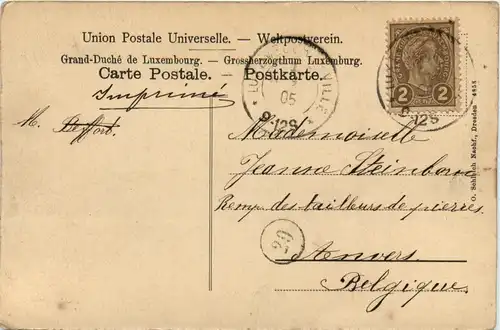 Union Postale Universelle. — Weltpostverein.
Grand-Duché de Luxembourg. — Grossherzogthum Luxemburg.
Carte Postale. — Postkarte.
Imprimé
M. Beffort.
LUXEMBOURG VILLE
05
9-12S
2 2
12S
Mademoiselle
Jeanne Steinborn
Remp. des tailleurs de pierres
20
Anvers
Belgique.
O. Schleich Nachf., Dresden